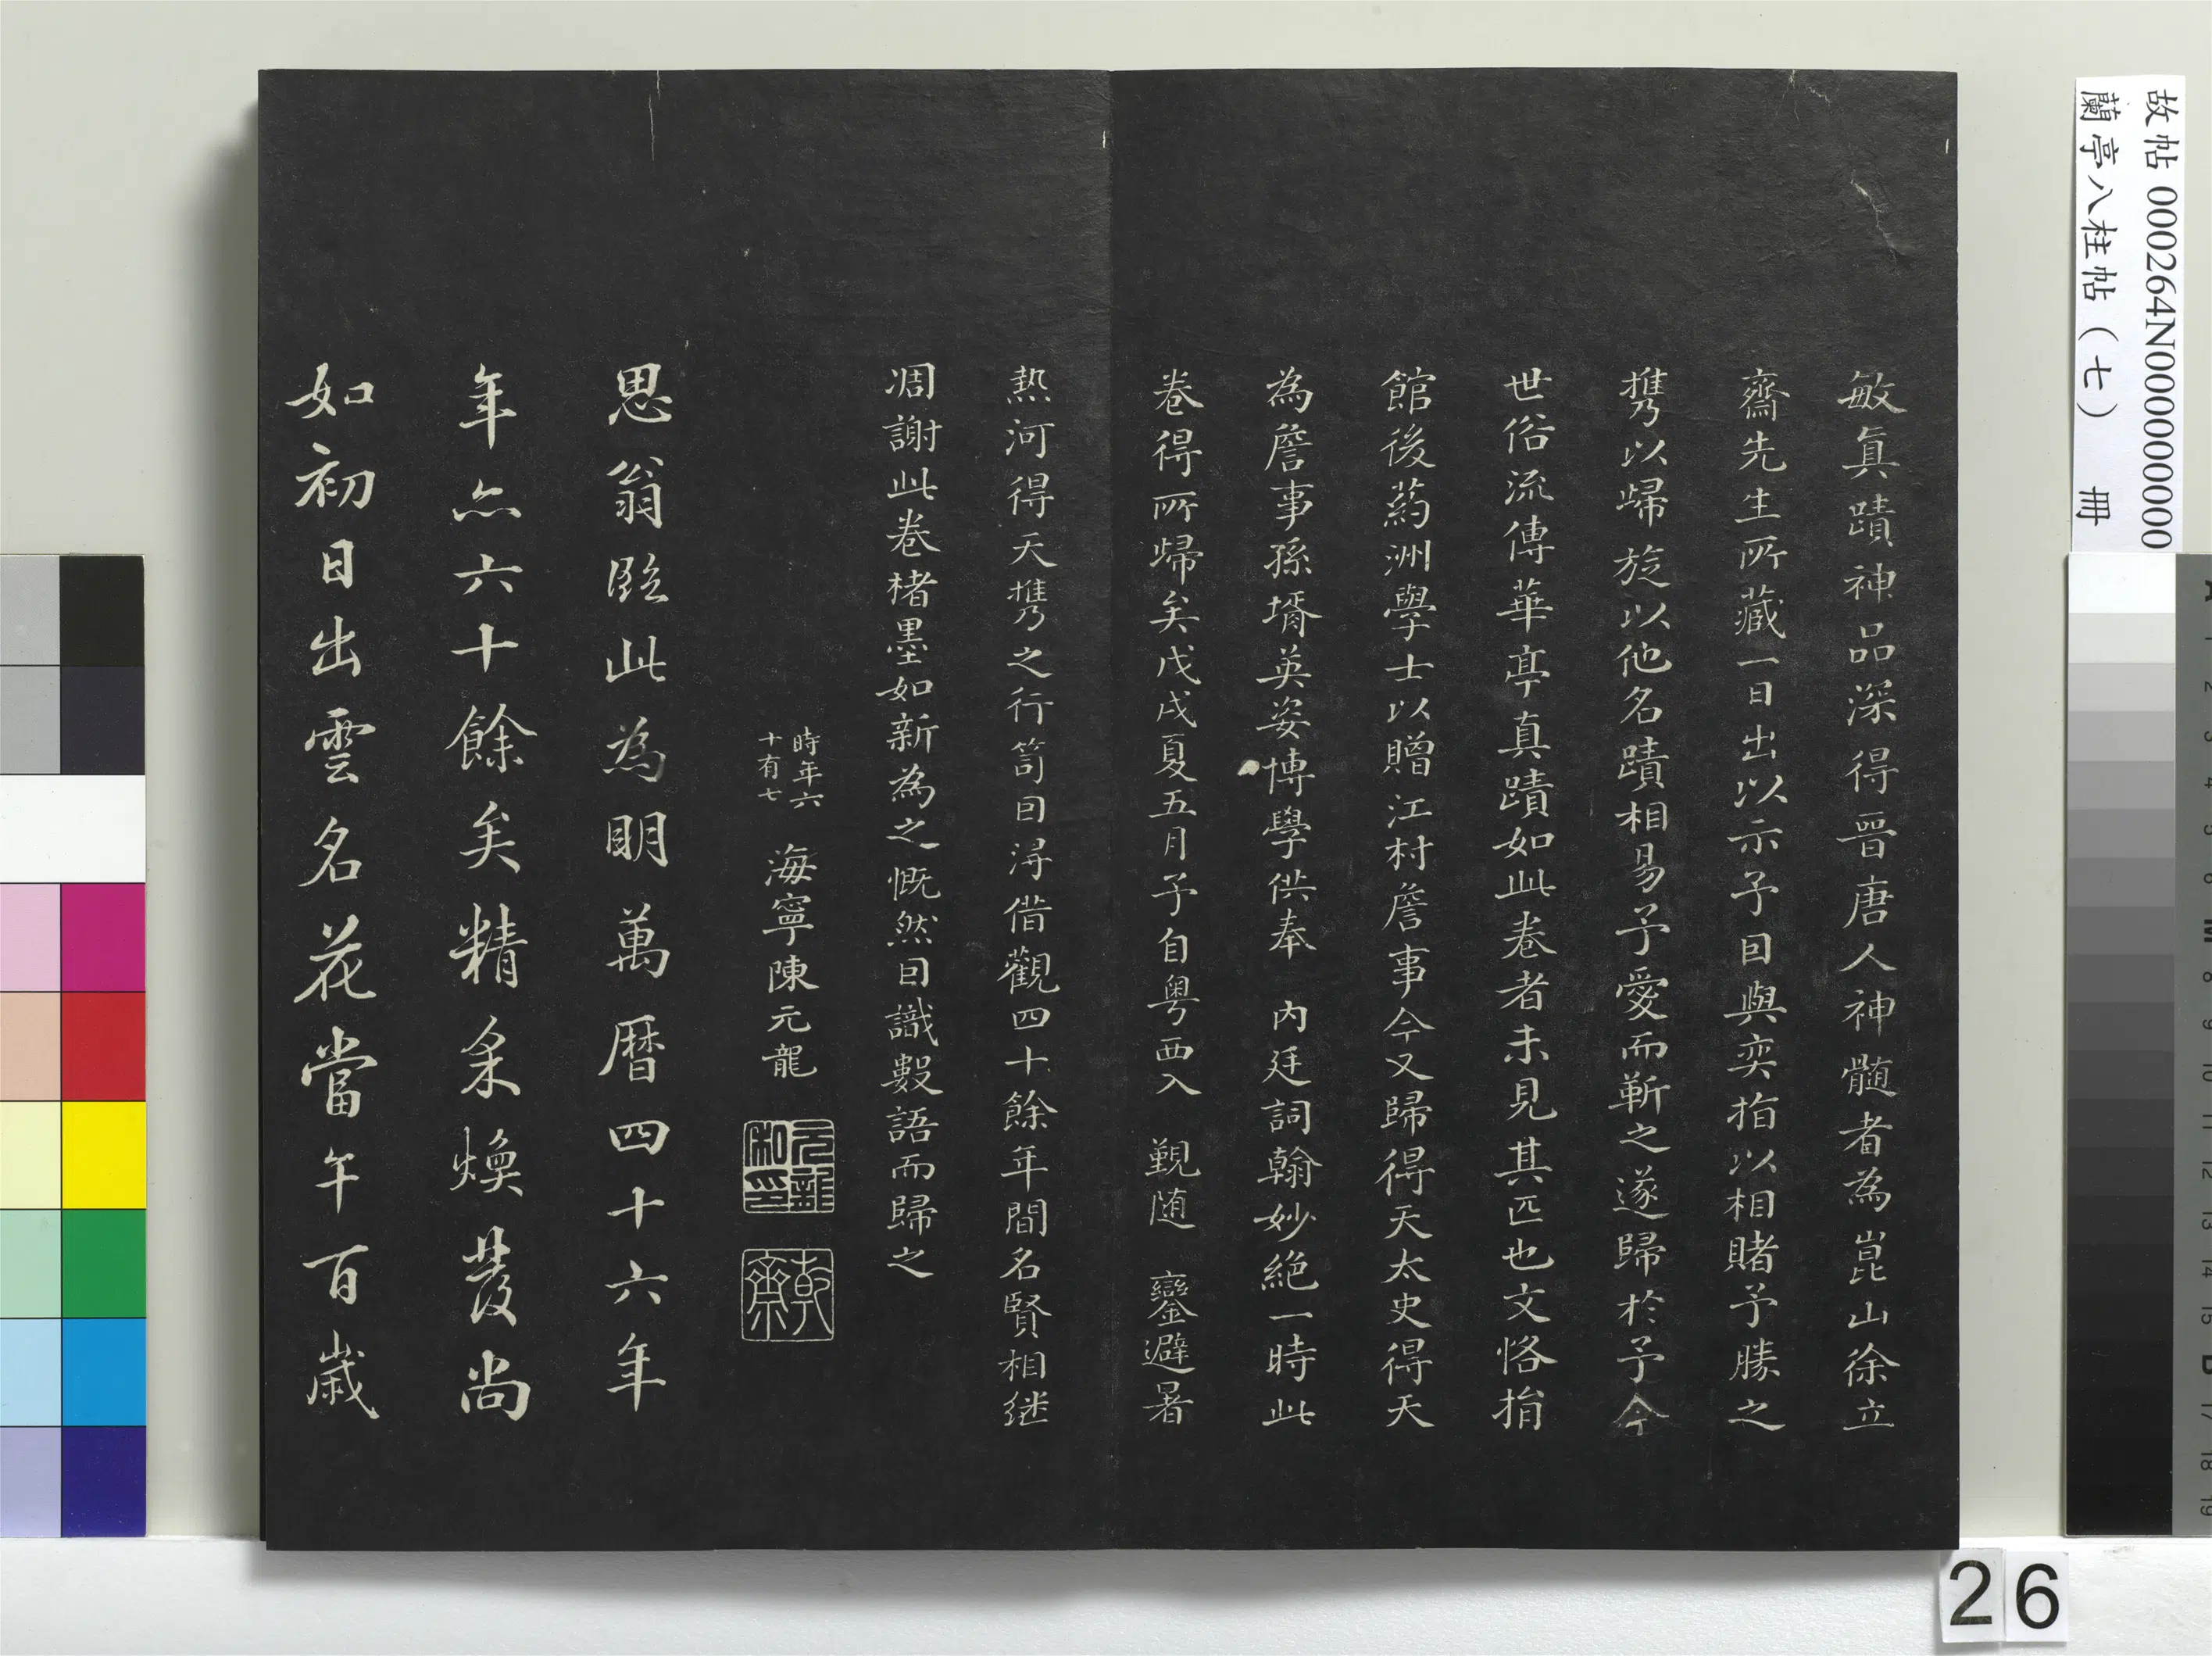 敏眞蹟神品深得晉唐人神髓者為崑山徐立
齋先生所藏一日出以示予囙與奕指以相賭予勝之
携以歸旋以他名蹟相易予愛而靳之遂歸於予今
世俗流傳華亭真蹟如此卷者未見其匹也文恪捐
館後葯洲學士以贈江村詹事今又歸得天太史得天
為詹事孫壻英姿博學供奉 內廷詞翰妙絕一時此
卷得所歸矣戊戌夏五月予自粤西入 覲随 鑾避暑
熱河得天携之行笥囙淂借觀四十餘年間名賢相継
凋謝此卷楮墨如新為之慨然囙識數語而歸之
時年六
十有七
海寧陳元龍
元龍私印
乾齋
思翁臨此為明萬曆四十六年
年亦六十餘矣精采煥發尚
如初日出雲名花當午百歲
故帖 000264N000000000
蘭亭八柱帖（七） 冊
26